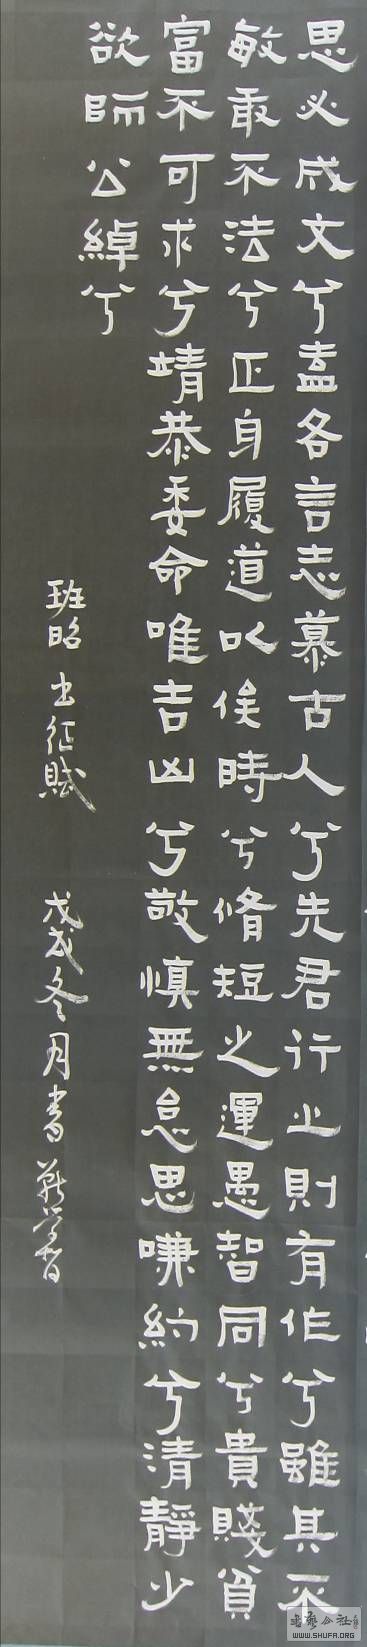 思必成文兮盍各言志慕古人兮先君行止則有作兮雖其不
敏敢不法兮正身履道以俟時兮脩短之運愚智同兮貴賤貧
富不可求兮靖恭委命唯吉凶兮敬慎無怠思嗛約兮清靜少
欲師公綽兮
班昭 東征賦 戊戌冬月書
書藝公社
WWW.SHUFA.ORG